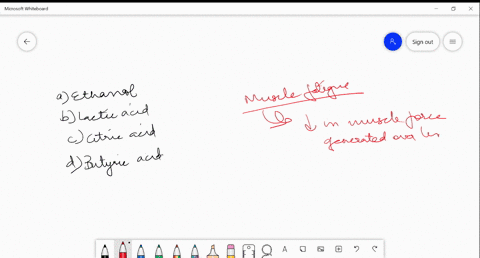 Microsoft Whiteboard
Sign out
a) Ethanol
b) Lactic acid
c) Citric acid
d) Butyric acid
Muscle fatigue
↓ in muscle force
generated over
A